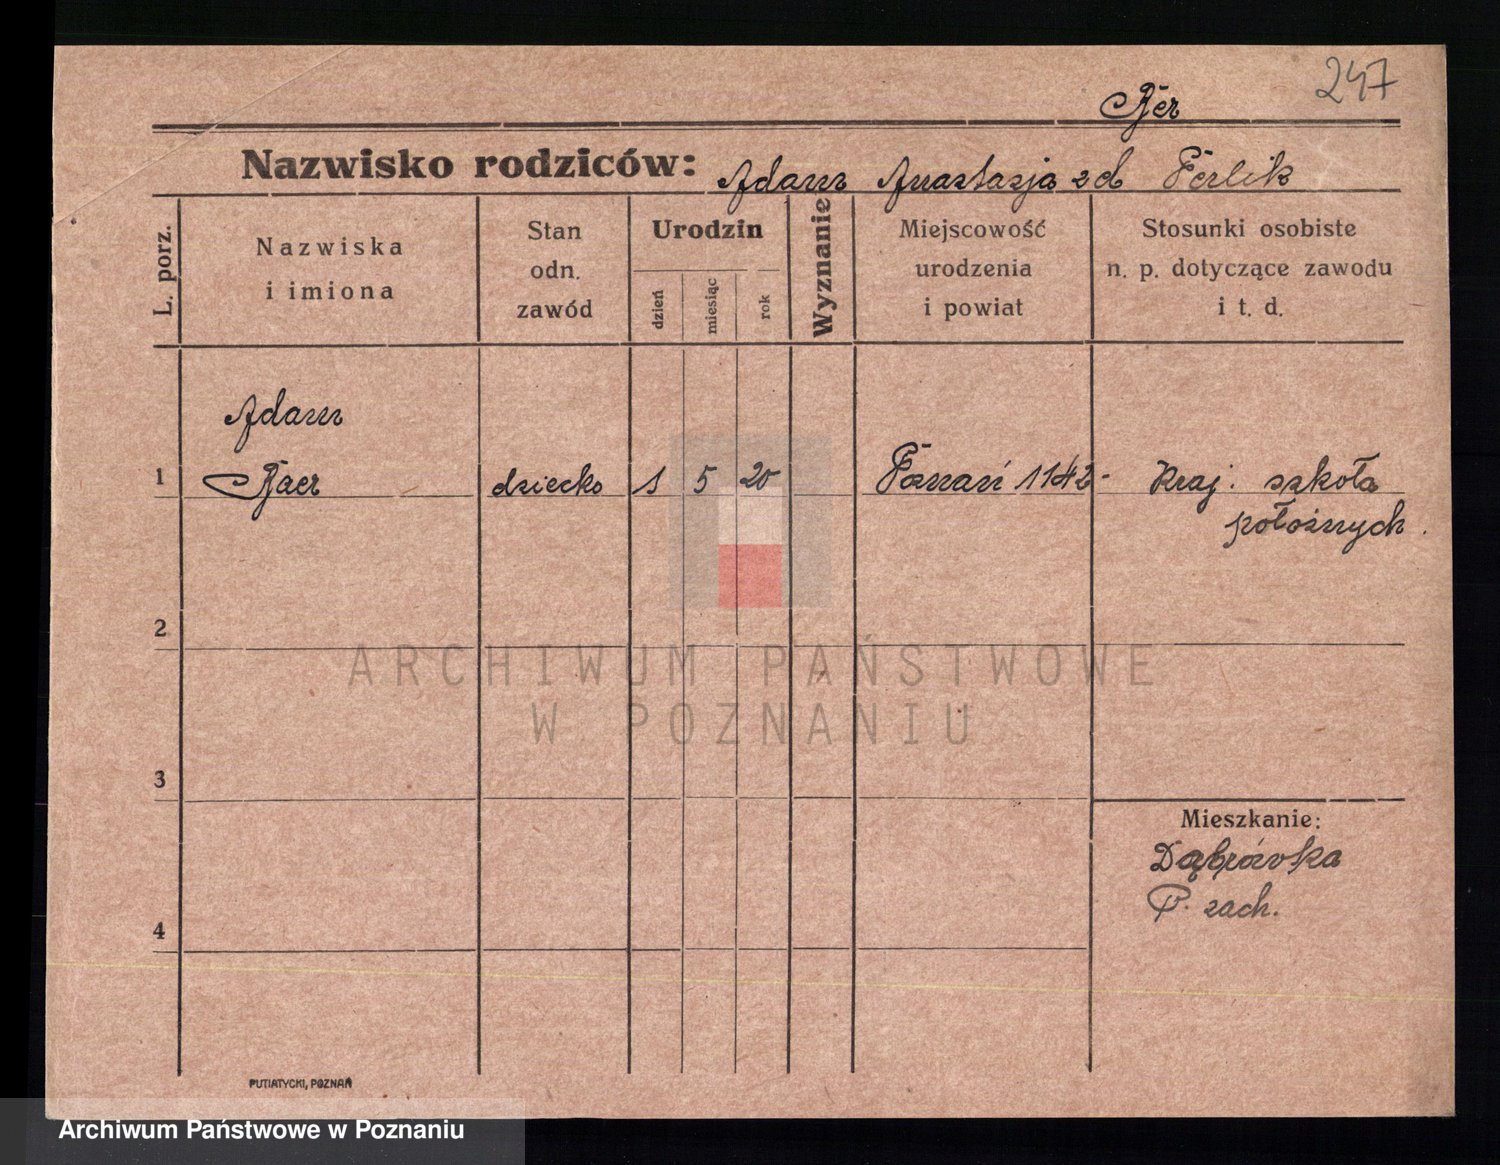 247
Nazwisko rodziców: Adam Anastazja zd
L. porz.
Nazwiska
i imiona
Stan
odn.
zawód
Urodzin
dzień
miesiąc
rok
Wyznanie
Miejscowość
urodzenia
i powiat
Stosunki osobiste
n. p. dotyczące zawodu
i t. d.
Adam
1 dziecko 1 5 20 Poznań 1142 - Kraj. szkoła
położnych.
2
ARCHIWUM PAŃSTWOWE
W POZNANIU
3
Mieszkanie:
Dąbrówka
P. zach.
4
PUTIATYCKI, POZNAŃ
Archiwum Państwowe w Poznaniu